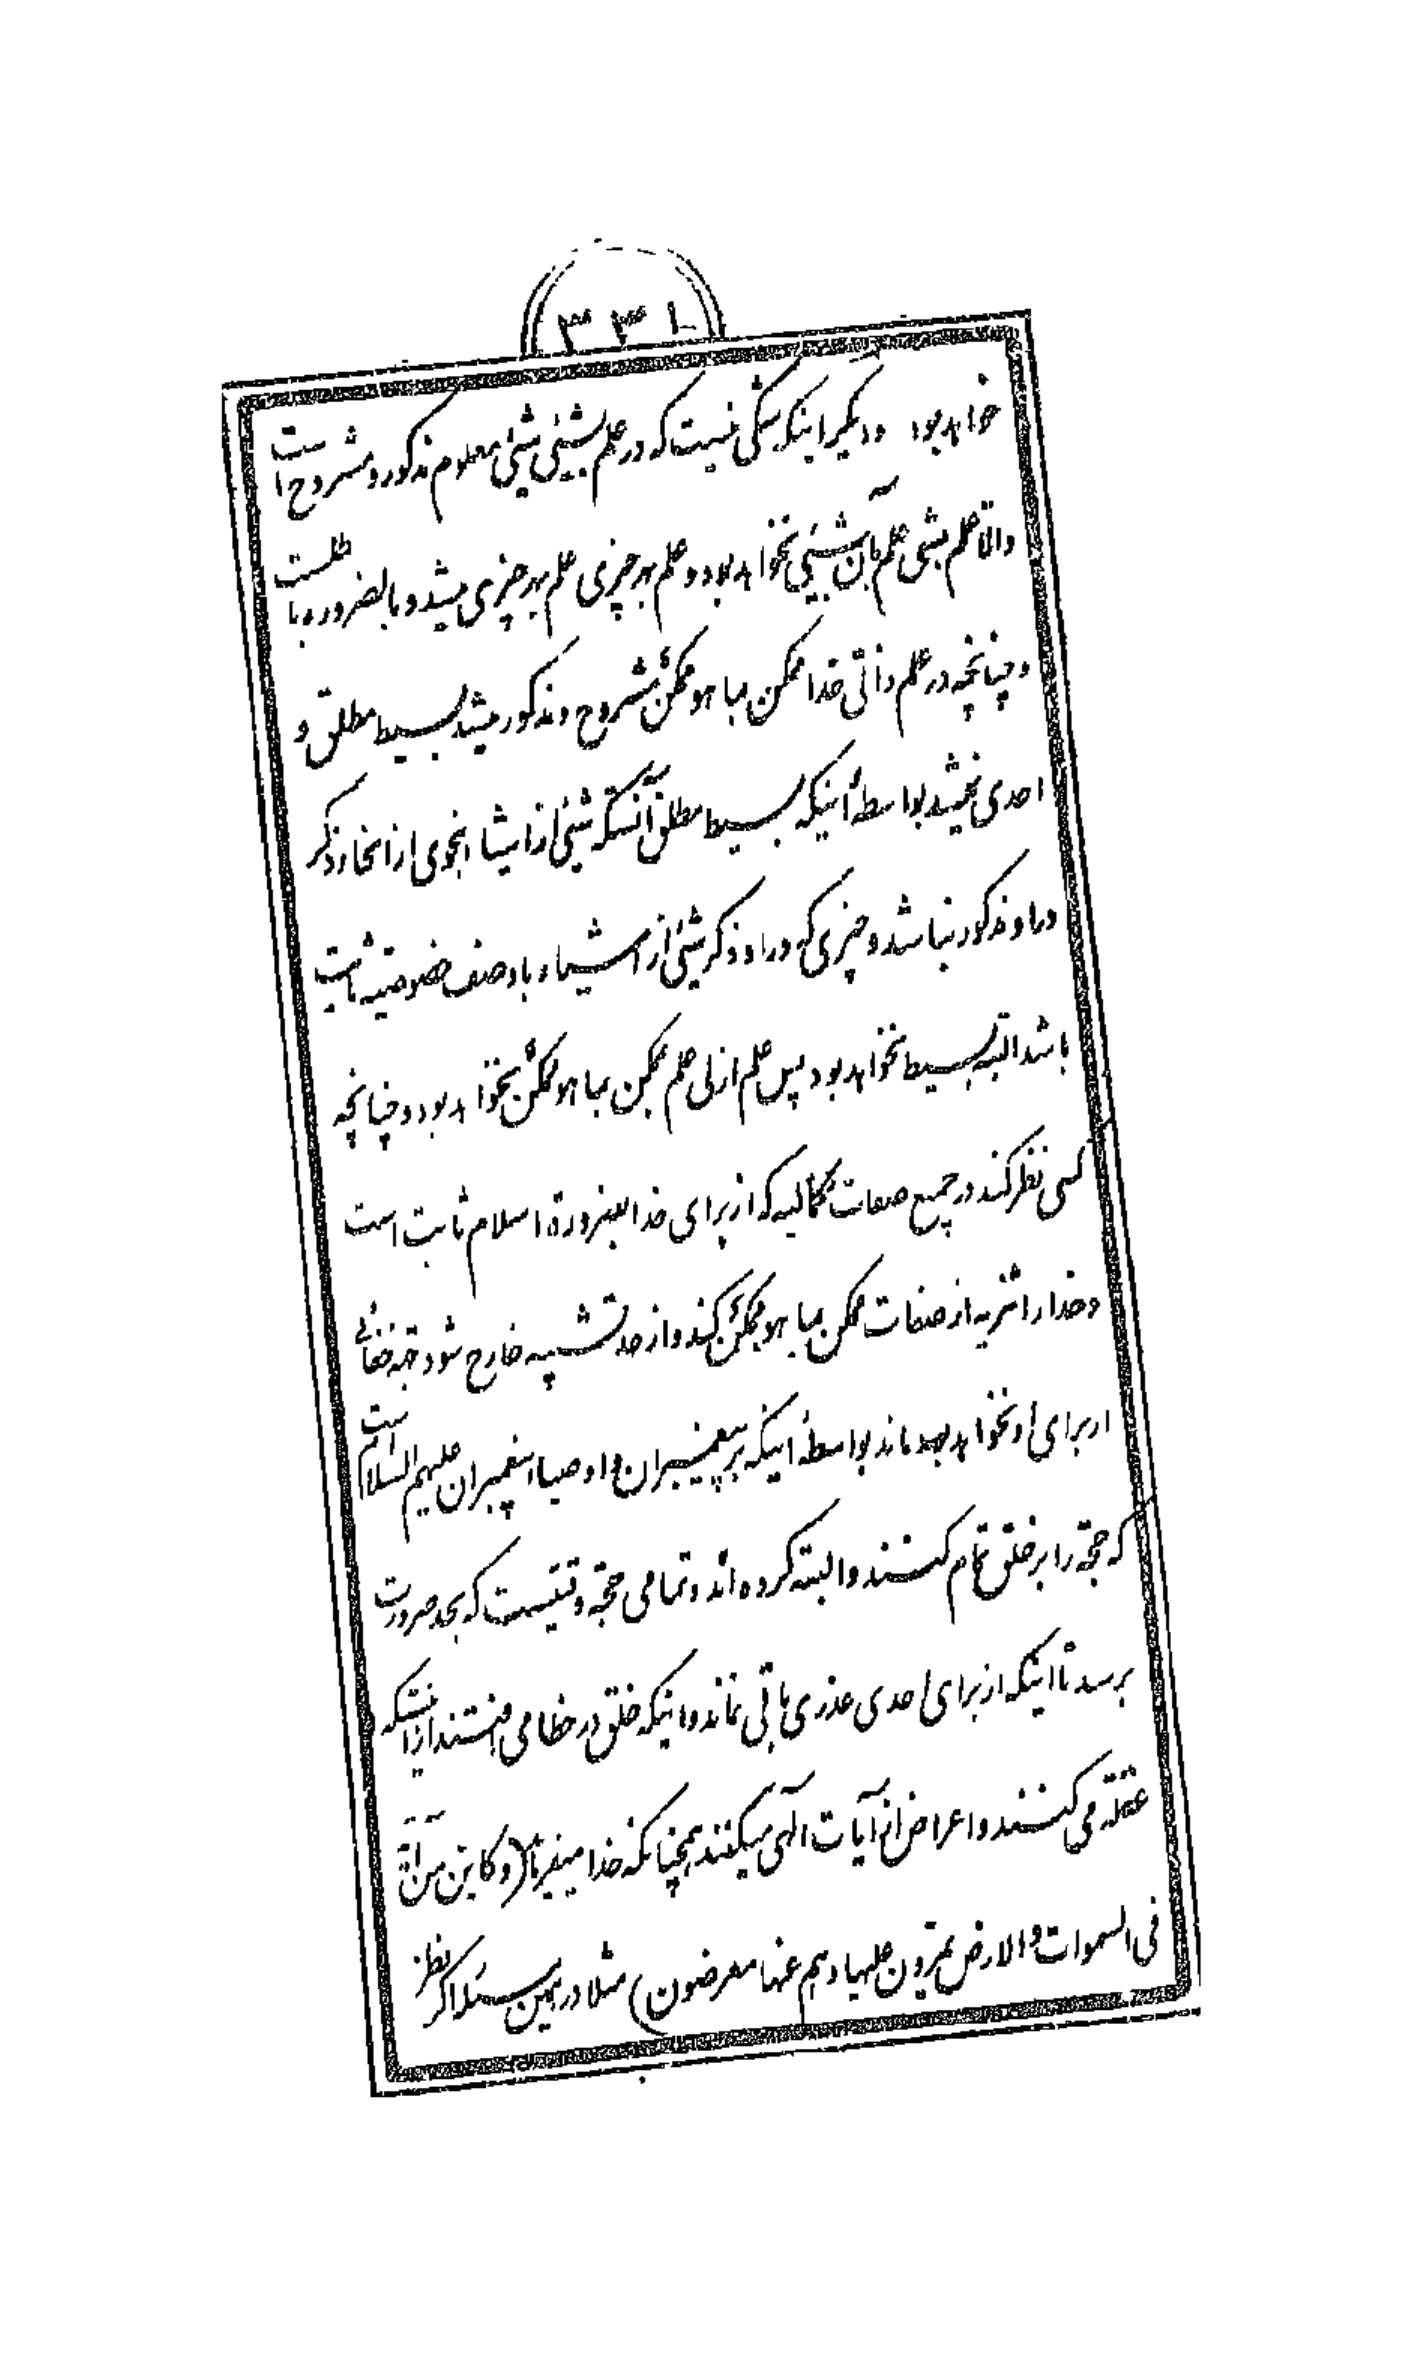 ۳۳۱
خواهد بود و دیگر اینکه شکی نیست که در علم بشیئی شیئی معلوم مذکور و مشروح است
والا علم بشیئی علم بآن شیئی نخواهد بود و علم بهر چیزی علم بهر چیزی میشد و بالضروره باطلست
و چنانچه در علم ذاتی خدا ممکن بما هو ممکن مشروح و مذکور میشد بسیط مطلق و
احدی نمیشد بواسطهٔ اینکه بسیط مطلق آنستکه شیئی از اشیاء بنحوی از انحاء ذکر
در او مذکور نباشد و چیزی که در او ذکر شیئی از اشیاء با وصف خصوصیته ثابت
باشد البته بسیط نخواهد بود پس علم ازلی علم بممکن بما هو ممکن نخواهد بود و چنانچه
کسی نظر کند در جمیع صفات کمالیه که از برای خدا بضرورة اسلام ثابت است
و خدا را تنزیه از صفات ممکن بما هو ممکن کند و از حد تشبیه خارج شود جه خفائی
از برای او نخواهد ماند بواسطهٔ اینکه بر پیغمبران و اوصیاء پیغمبران علیهم السلام است
که حجة را بر خلق تمام کنند و البته کرده اند و تمامی حجة وقتیست که بحد ضرورت
برسد تا اینکه از برای احدی عذری باقی نماند و اینکه خلق در خطا می افتند از اینستکه
غفلة می کنند و اعراض از آیات الهی میکنند همچنانکه خدا میفرماید (و کاین من آیة
فی السموات والارض یمرون علیها و هم عنها معرضون) مثلا در همین مسئله اگر نظر